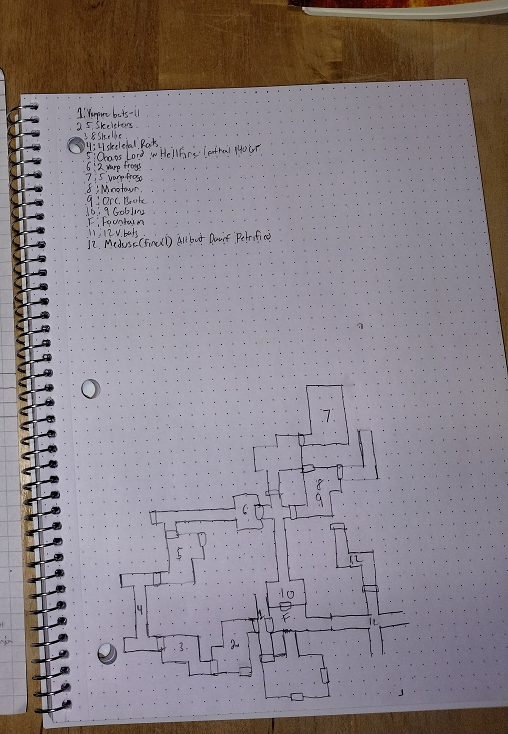 1: Vampire bats-11
2 5 Skeletons
3 8 Skellie
4: 4 Skeletal Rats
5: Chaos Lord w Hellfire 140 GT
6: 2 warp frogs
7: 5 warp frogs
8: Minotaur
9: Orc Brute
10: 9 Goblins
F: Fountain
11: 12 V. bats
12. Medusa (final) All but Dwarf Petrified
7
8
9
6
5
12
10
4
F
3
2